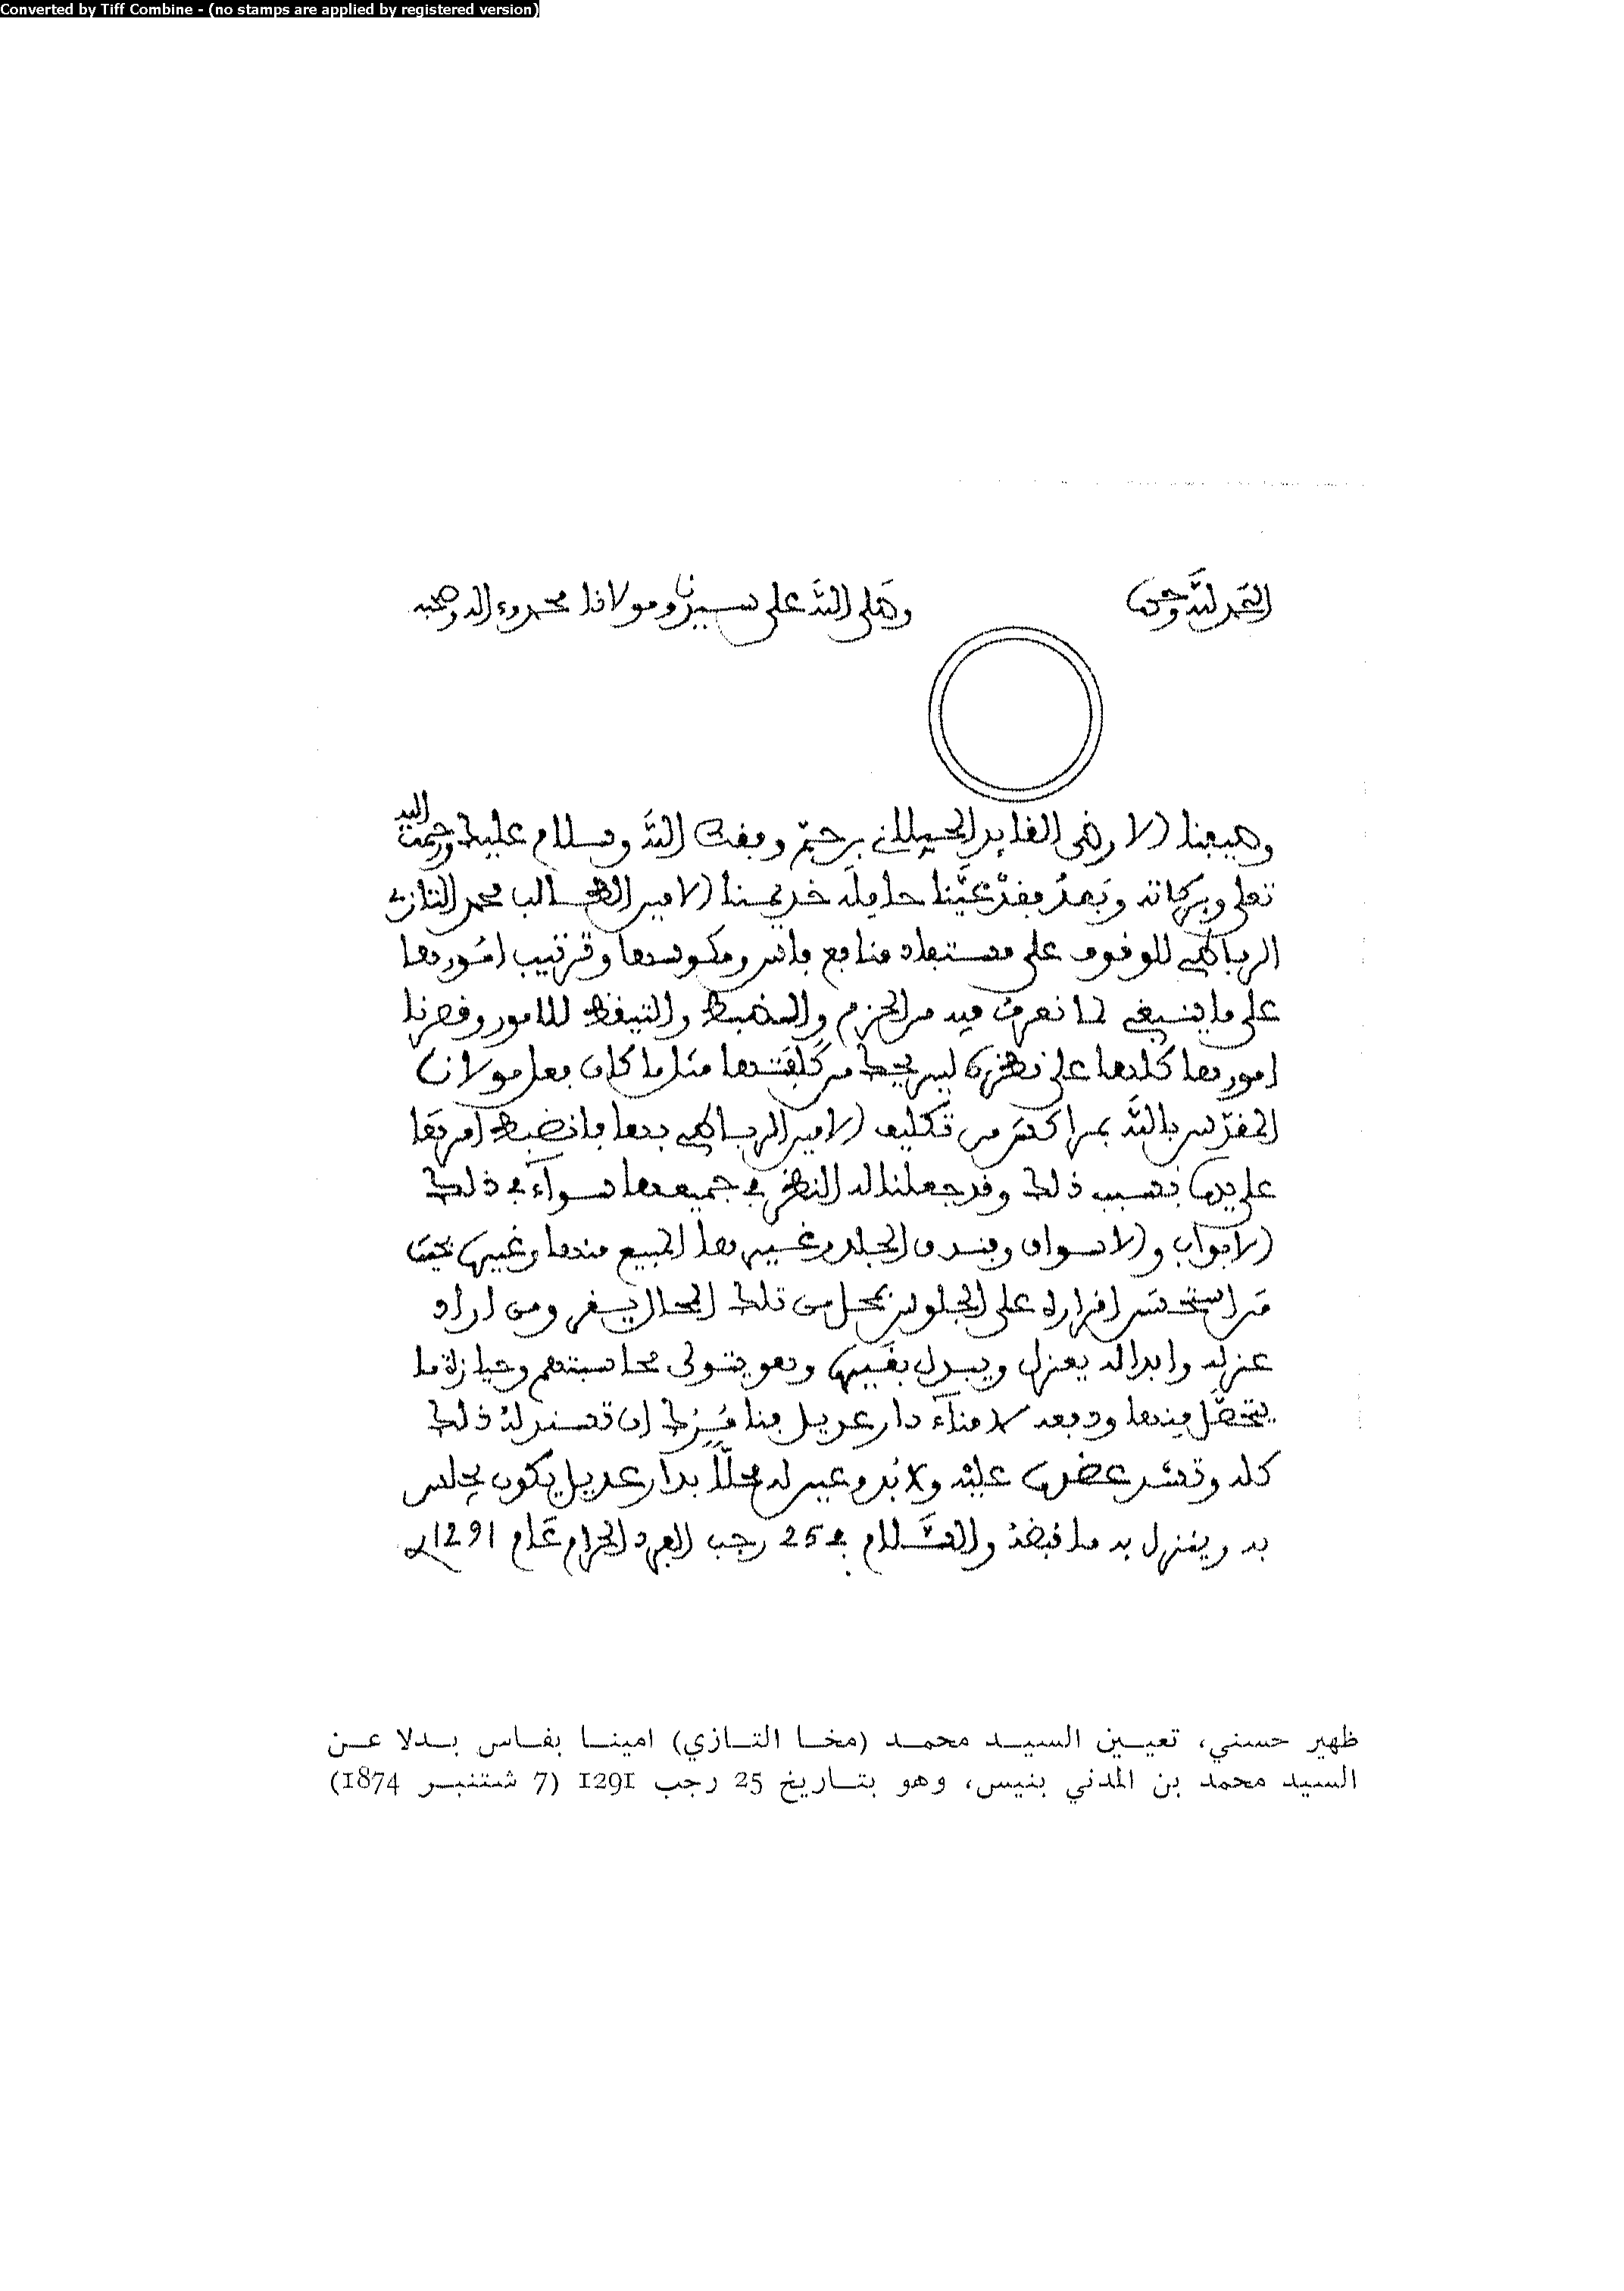 Converted by Tiff Combine - (no stamps are applied by registered version)
الحمد لله وحده
وصلى الله على سيدنا ومولانا محمد وءاله وصحبه
وصيفنا الارضى القايد الجيلاني بن حم وفقك الله وسلام عليك ورحمت الله
تعلى وبركاته وبعد فقد عينا حامله خديمنا الامين الطالب محمد التازي
الرباطي للوقوف على مستفاد منافع فاس ومكوسها وترتيب امورها
على ما ينبغي لما نعرف فيه من الحزم والضبط والتيقظ للامور وقصرنا
امورها كلها على نظره ليس يحط من كلفتها مثل ما كان فعل مولانا
المقدس بالله بمراكش من تكليف الامين الرباطي بها فانضبط امرها
على يده بسبب ذلك وقد جعلنا له النظر في جميعها سواء في ذلك
الابواب والاسواق وفندق الجلد وغيرها المبيع منها وغيره بحيث
من استحسن اقراره على الجلوس بمحل من تلك المحال يقر ومن اراد
عزله وابداله يعزل ويبدل بغيره وهو يتولى محاسبتهم وحيازة ما
يتحصل منها ودفعه لامناء دار عديل فنامرك ان تسند له ذلك
كله وتشد عضده عليه ولا بد وعين له محلا بدار عديل يكون يجلس
به وينزل به ما قبضه والسلام في 25 رجب الفرد الحرام عام 1291
ظهير حسني، تعيين السيد محمد (مخا التازي) امينا بفاس بدلا عن
السيد محمد بن المدني بنيس، وهو بتاريخ 25 رجب 1291 (7 شتنبر 1874)